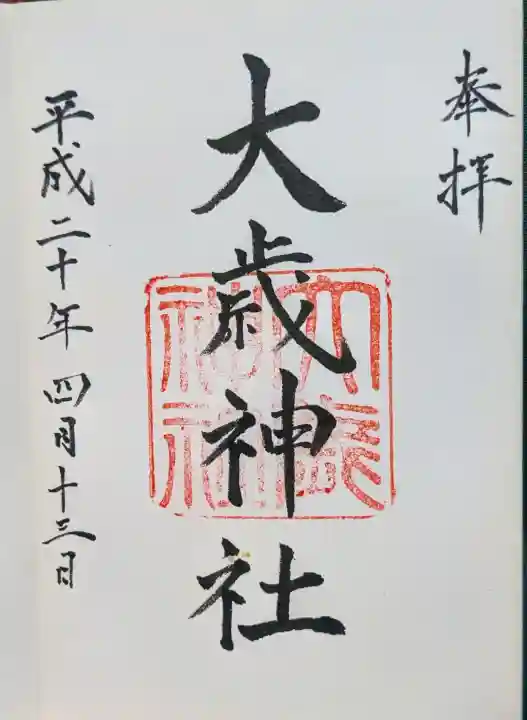 奉拝
大歳神社
大歳
神社
平成二十年四月十三日